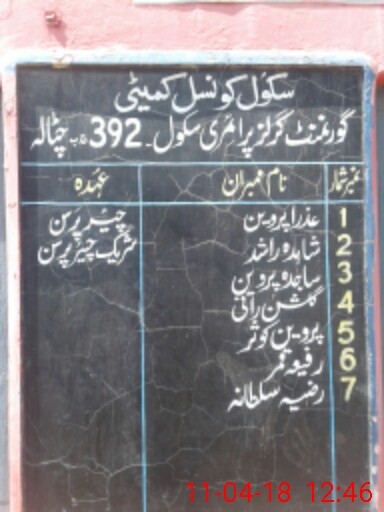 سکول کونسل کمیٹی
گورنمنٹ گرلز پرائمری سکول۔ 392 گ ب چٹالہ
نمبر شمار نام ممبران عہدہ
1 عذرا پروین چیئر پرسن
2 شاہدہ راشد شریک چیئر پرسن
3 ساجدہ پروین
4 گلشن رانی
5 پروین کوثر
6 رفیعہ قمر
7 رضیہ سلطانہ
11-04-18 12:46